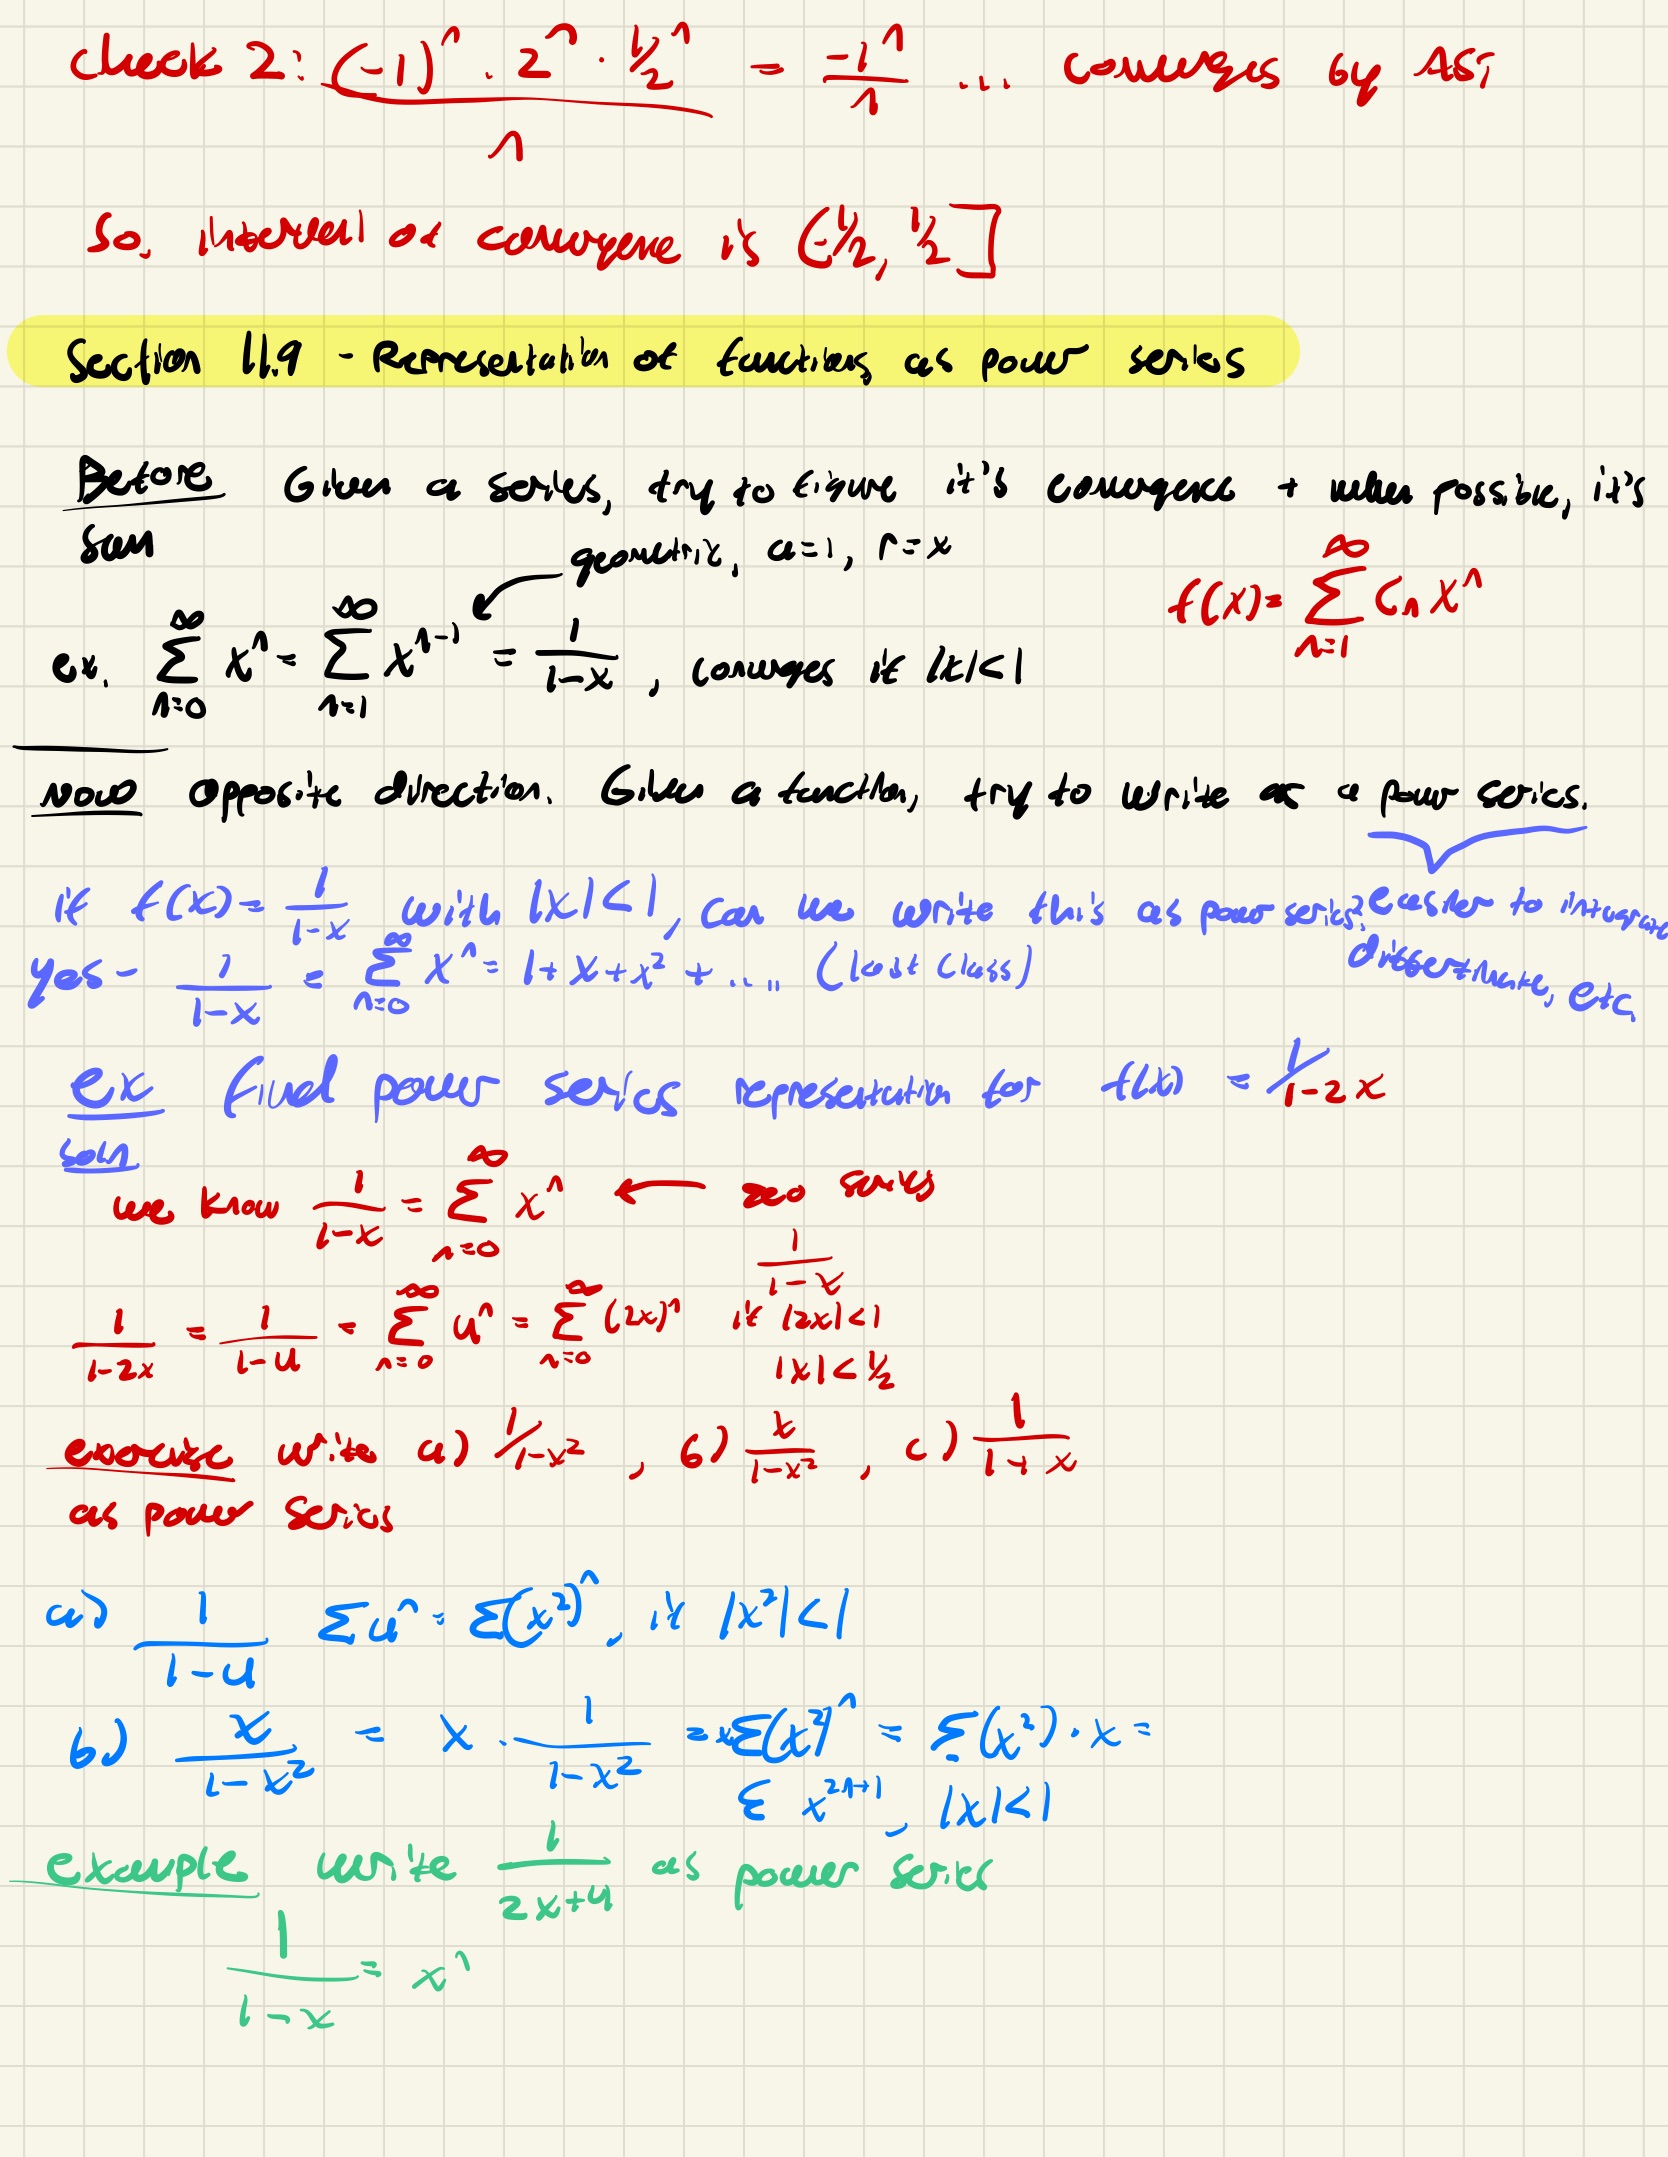 check 2: (-1)^n · 2^n · 1/2^n / n = -1^n / n ... converges by AST
So, interval of convergence is (-1/2, 1/2]
Section 11.9 - Representation of functions as power series
Before Given a series, try to figure it's convergence + when possible, it's
sum
geometric, a=1, r=x
f(x)= ∑_{n=1}^{∞} C_n x^n
ex. ∑_{n=0}^{∞} x^n = ∑_{n=1}^{∞} x^{n-1} = 1/(1-x), converges if |x|<1
Now opposite direction. Given a function, try to write as a power series.
if f(x)= 1/(1-x) with |x|<1, can we write this as power series? easier to integrate
yes - 1/(1-x) = ∑_{n=0}^{∞} x^n = 1+x+x^2+.... (last class) differentiate, etc.
ex find power series representation for f(x) = 1/(1-2x)
soln
we know 1/(1-x) = ∑_{n=0}^{∞} x^n ← geo series
1/(1-x)
1/(1-2x) = 1/(1-u) = ∑_{n=0}^{∞} u^n = ∑_{n=0}^{∞} (2x)^n if |2x|<1
|x|<1/2
exercise write a) 1/(1-x^2), b) x/(1-x^2), c) 1/(1+x)
as power series
a) 1/(1-u) ∑u^n = ∑(x^2)^n, if |x^2|<1
b) x/(1-x^2) = x · 1/(1-x^2) = x∑(x^2)^n = ∑(x^2)·x =
∑ x^{2n+1}, |x|<1
example write 1/(2x+4) as power series
1/(1-x) = x^n